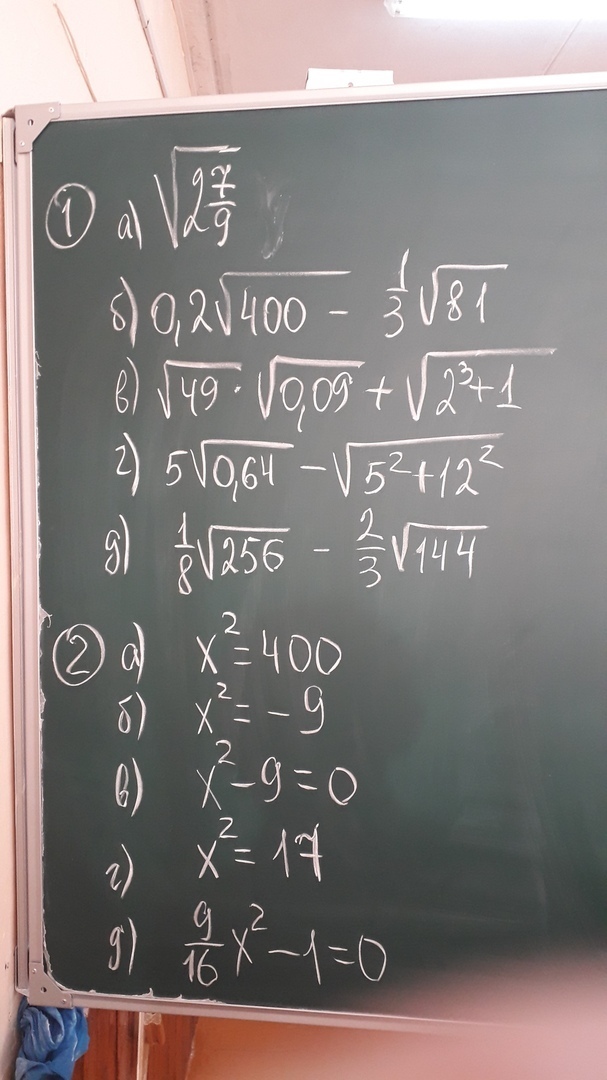 ① а) √(2 7/9)
б) 0,2√400 - 1/3 √81
в) √49 · √0,09 + √(2³+1)
г) 5√0,64 - √(5²+12²)
д) 1/8 √256 - 2/3 √144
② а) x² = 400
б) x² = -9
в) x² - 9 = 0
г) x² = 17
д) 9/16 x² - 1 = 0